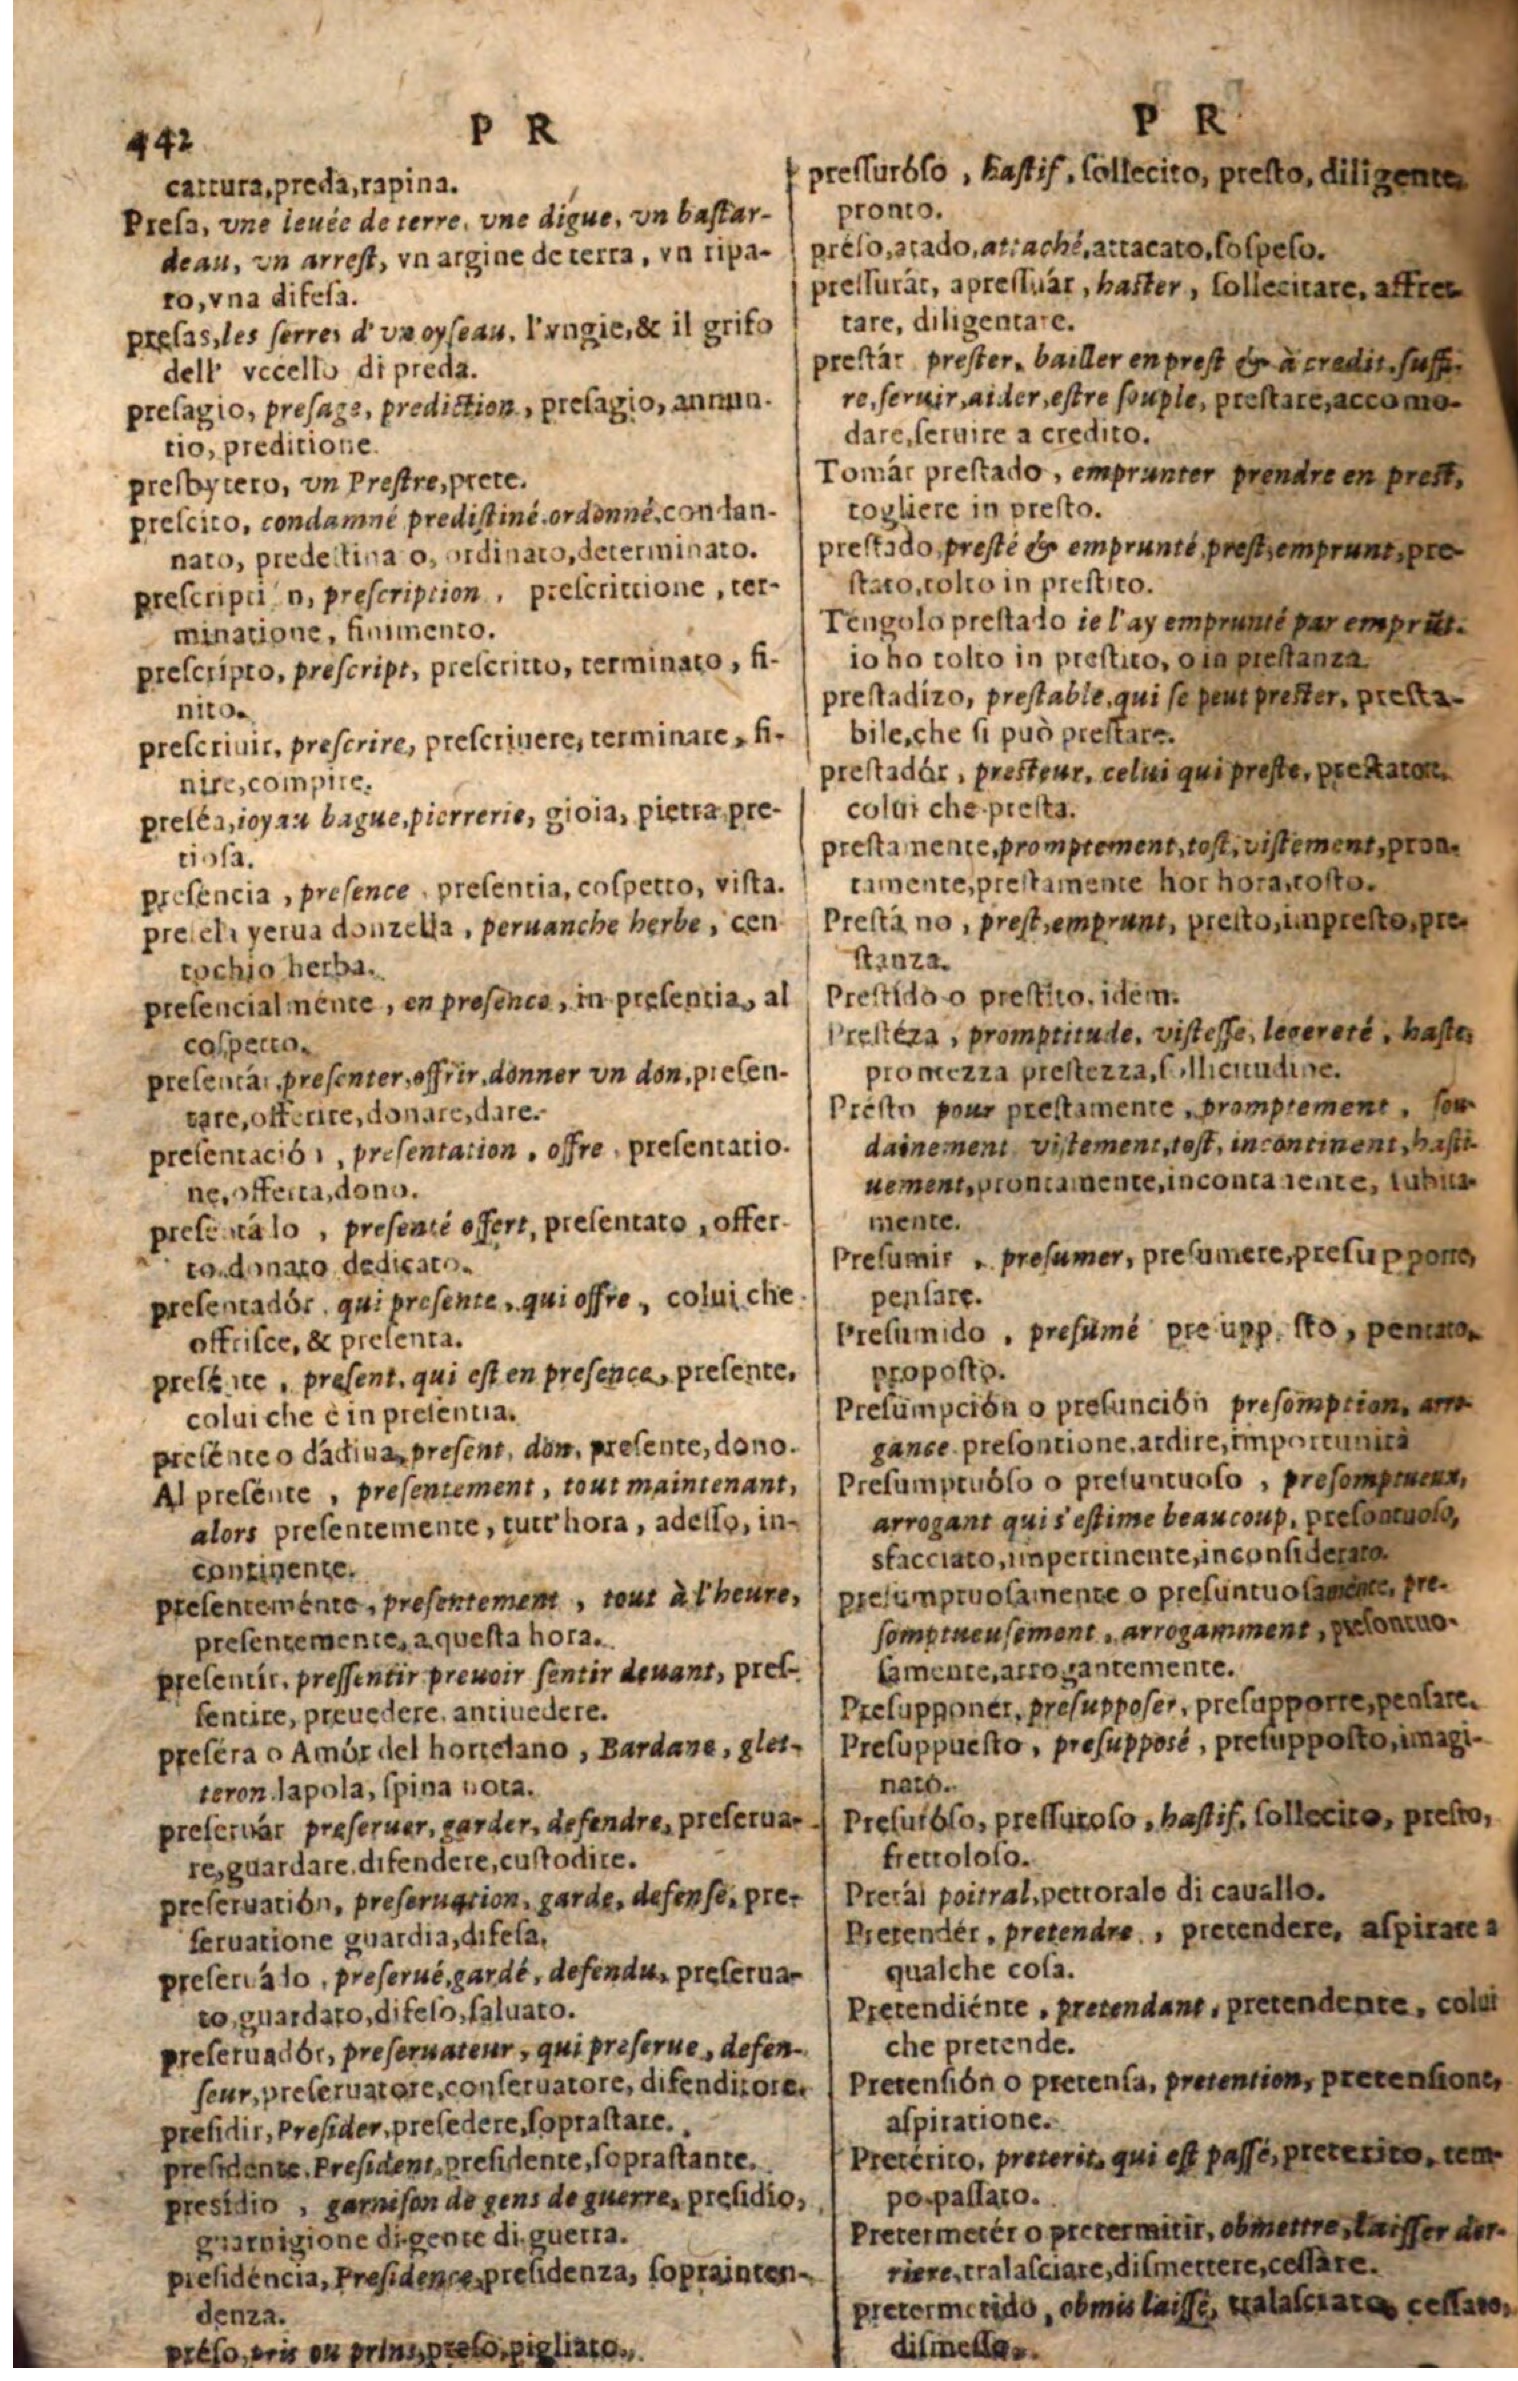 442
P R
cattura, preda, rapina.
Presa, vne leuée de terre, vne digue, vn bastar-
deau, vn arrest, vn argine de terra, vn ripa-
ro, vna difesa.
presas, les serres d'vn oyseau, l'vngie, & il grifo
dell' vccello di preda.
presagio, presage, prediction, presagio, annun-
tio, preditione.
presbytero, vn Prestre, prete.
prescito, condamné predistiné ordonné, condan-
nato, predestina o, ordinato, determinato.
prescripti n, prescription, prescrittione, ter-
minatione, finimento.
prescripto, prescript, prescritto, terminato, fi-
nito.
prescriuir, prescrire, prescriuere, terminare, fi-
nire, compire.
preséa, ioyau bague, pierrerie, gioia, pietra pre-
tiosa.
presencia, presence, presentia, cospetto, vista.
yerua donzella, peruanche herbe, cen
tochio herba.
presencialménte, en presence, in presentia, al
cospetto.
presentár, presenter, offrir, donner vn don, presen-
tare, offerire, donare, dare.
presentación, presentation, offre, presentatio-
ne, offerta, dono.
presentádo, presenté offert, presentato, offer-
to, donato dedicato.
presentadór, qui presente, qui offre, colui che
offrisce, & presenta.
presénte, present, qui est en presence, presente,
colui che è in presentia.
presénte o dádiua, present, don, presente, dono.
Al presénte, presentement, tout maintenant,
alors presentemente, tutt'hora, adesso, in-
continente.
presenteménte, presentement, tout à l'heure,
presentemente, a questa hora.
presentír, pressentir preuoir sentir deuant, pres-
sentire, preuedere, antiuedere.
preséra o Amór del hortelano, Bardane, glet-
teron lapola, spina nota.
preseruár preseruer, garder, defendre, preserua-
re, guardare, difendere, custodire.
preseruatión, preseruation, garde, defense, pre-
seruatione guardia, difesa.
preseruádo, preserué, gardé, defendu, preserua-
to, guardato, difeso, saluato.
preseruadór, preseruateur, qui preserue, defen-
seur, preseruatore, conseruatore, difenditore.
presidir, Presider, presedere, soprastare.
presidente, President, presidente, soprastante.
presídio, garnison de gens de guerre, presidio,
guarnigione di gente di guerra.
presidéncia, Presidence, presidenza, soprainten-
denza.
préso, pris ou prins, preso, pigliato.
P R
pressuróso, hastif, sollecito, presto, diligente,
pronto.
préso, atado, attaché, attacato, sospeso.
pressurár, apressuár, haster, sollecitare, affret-
tare, diligentare.
prestár prester, bailler en prest & à credit, suffi-
re, seruir, aider, estre souple, prestare, accomo-
dare, seruire a credito.
Tomár prestado, emprunter prendre en prest,
togliere in presto.
prestado, presté & emprunté, prest, emprunt, pre-
stato, tolto in prestito.
Téngolo prestado ie l'ay emprunté par emprũt.
io ho tolto in prestito, o in prestanza
prestadizo, prestable, qui se peut prester, presta-
bile, che si può prestare.
prestadór, presteur, celui qui preste, prestatore,
colui che presta.
prestamente, promptement, tost, vistement, pron-
tamente, prestamente hor hora, tosto.
no, prest, emprunt, presto, impresto, pre-
stanza.
Prestido o prestito, idem.
Prestéza, promptitude, vistesse, legereté, haste,
prontezza prestezza, sollicitudine.
Présto pour prestamente, promptement, sou-
dainement vistement, tost, incontinent, hasti-
uement, prontamente, incontanente, subita-
mente.
Presumir, presumer, presumere, presupporre,
pensare.
Presumido, presumé presupposto, pensato,
proposto.
Presumpción o presunción presomption, arro-
gance presontione, ardire, importunità
Presumptuóso o presuntuoso, presomptueux,
arrogant qui s'estime beaucoup, presontuoso,
sfacciato, impertinente, inconsiderato.
presumptuosamente o presuntuosamente, pre-
somptueusement, arrogamment, presontuo-
samente, arrogantemente.
Presupponér, presupposer, presupporre, pensare.
Presuppuesto, presupposé, presupposto, imagi-
nato.
Presuróso, pressuroso, hastif, sollecito, presto,
frettoloso.
Pretál poitral, pettorale di cauallo.
Pretendér, pretendre, pretendere, aspirare a
qualche cosa.
Pretendiénte, pretendant, pretendente, colui
che pretende.
Pretensión o pretensa, pretention, pretensione,
aspiratione.
Pretérito, preterit, qui est passé, preterito, tem-
po passato.
Pretermetér o pretermitir, obmettre, laisser der-
riere, tralasciare, dismettere, cessare.
pretermetido, obmis laissé, tralasciato, cessato,
dismesso.